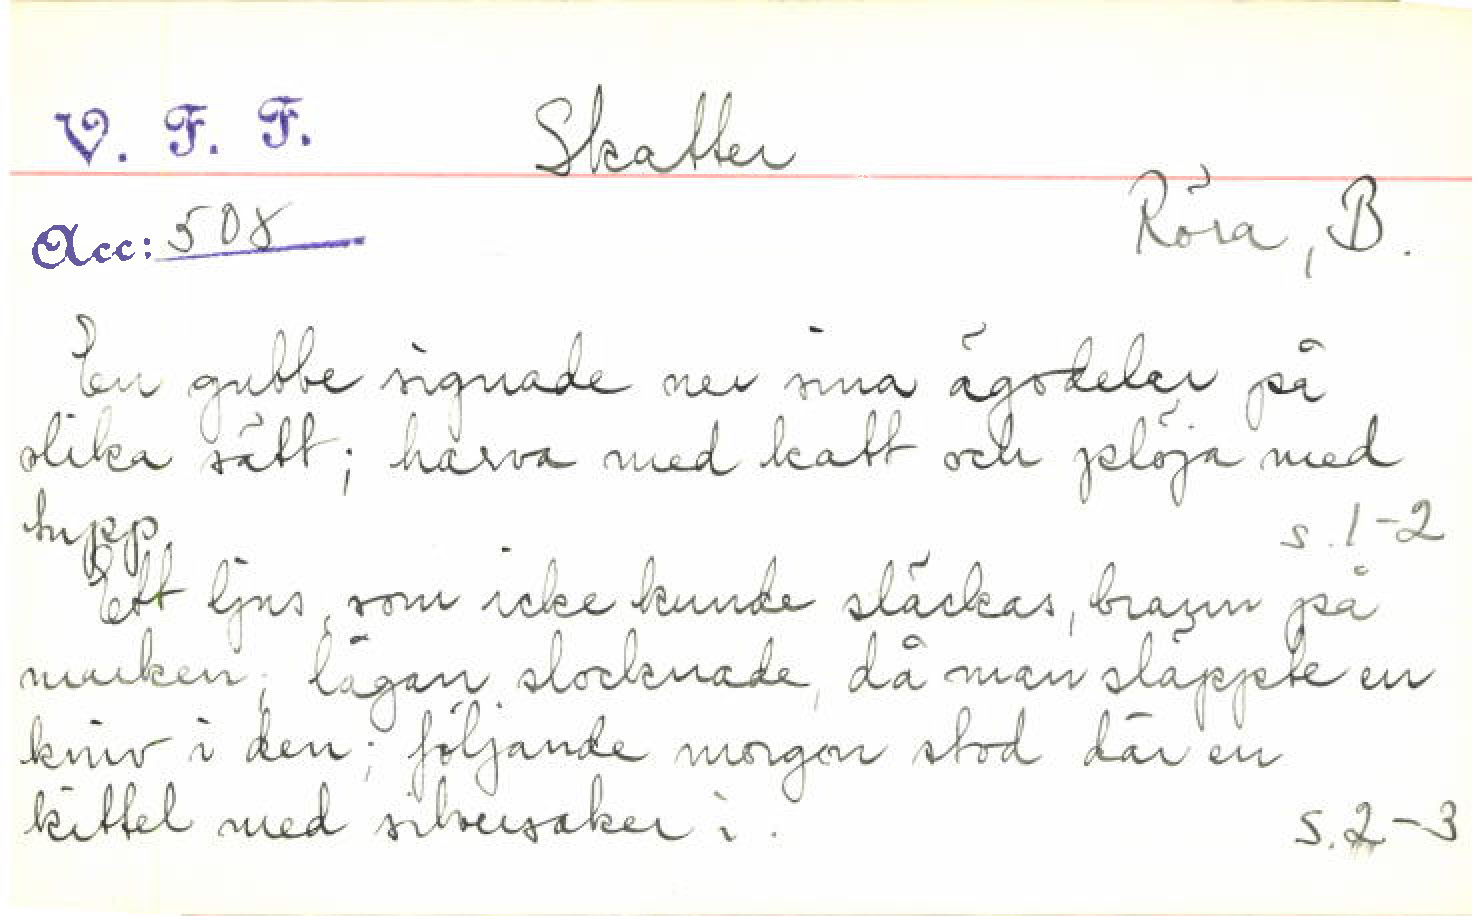 V. F. F. Skatter
Acc: 508 Röra, B.
En gubbe signade ner sina ägodelar på
olika sätt; harva med katt och plöja med
tupp s. 1-2
Ett ljus, som icke kunde släckas, brann på
marken; lågan slocknade, då man släppte en
kniv i den; följande morgon stod där en
kittel med silversaker i. s. 2-3